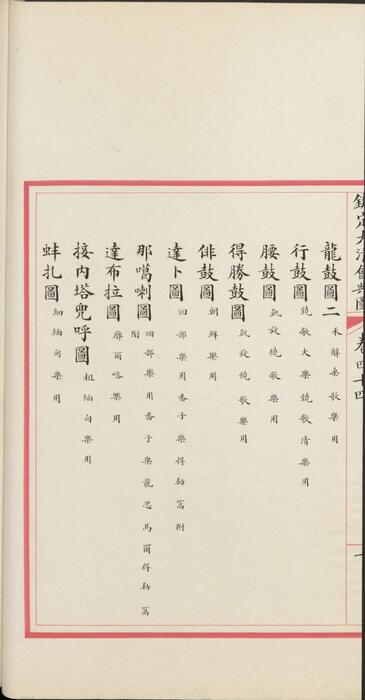 欽定大清會典圖 卷四十四 一
龍鼓圖二 禾辭桑歌樂用
行鼓圖 鐃歌大樂鐃歌清樂用
腰鼓圖 凱旋鐃歌樂用
得勝鼓圖 凱旋鐃歌樂用
俳鼓圖 朝鮮樂用
達卜圖 回部樂用番子樂得勒窩附
那噶喇圖 回部樂用番子樂龍思馬爾得勒窩附
達布拉圖 廓爾喀樂用
接內塔兜呼圖 粗緬甸樂用
蚌扎圖 細緬甸樂用